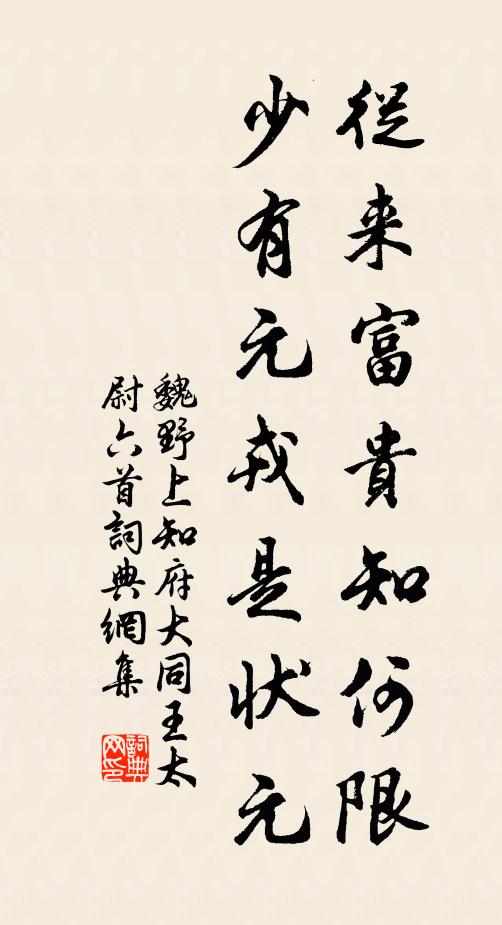 從来富貴知何限
少有元戎是状元
魏野上知府大同王太
尉六首詞典網集
詞典
网印